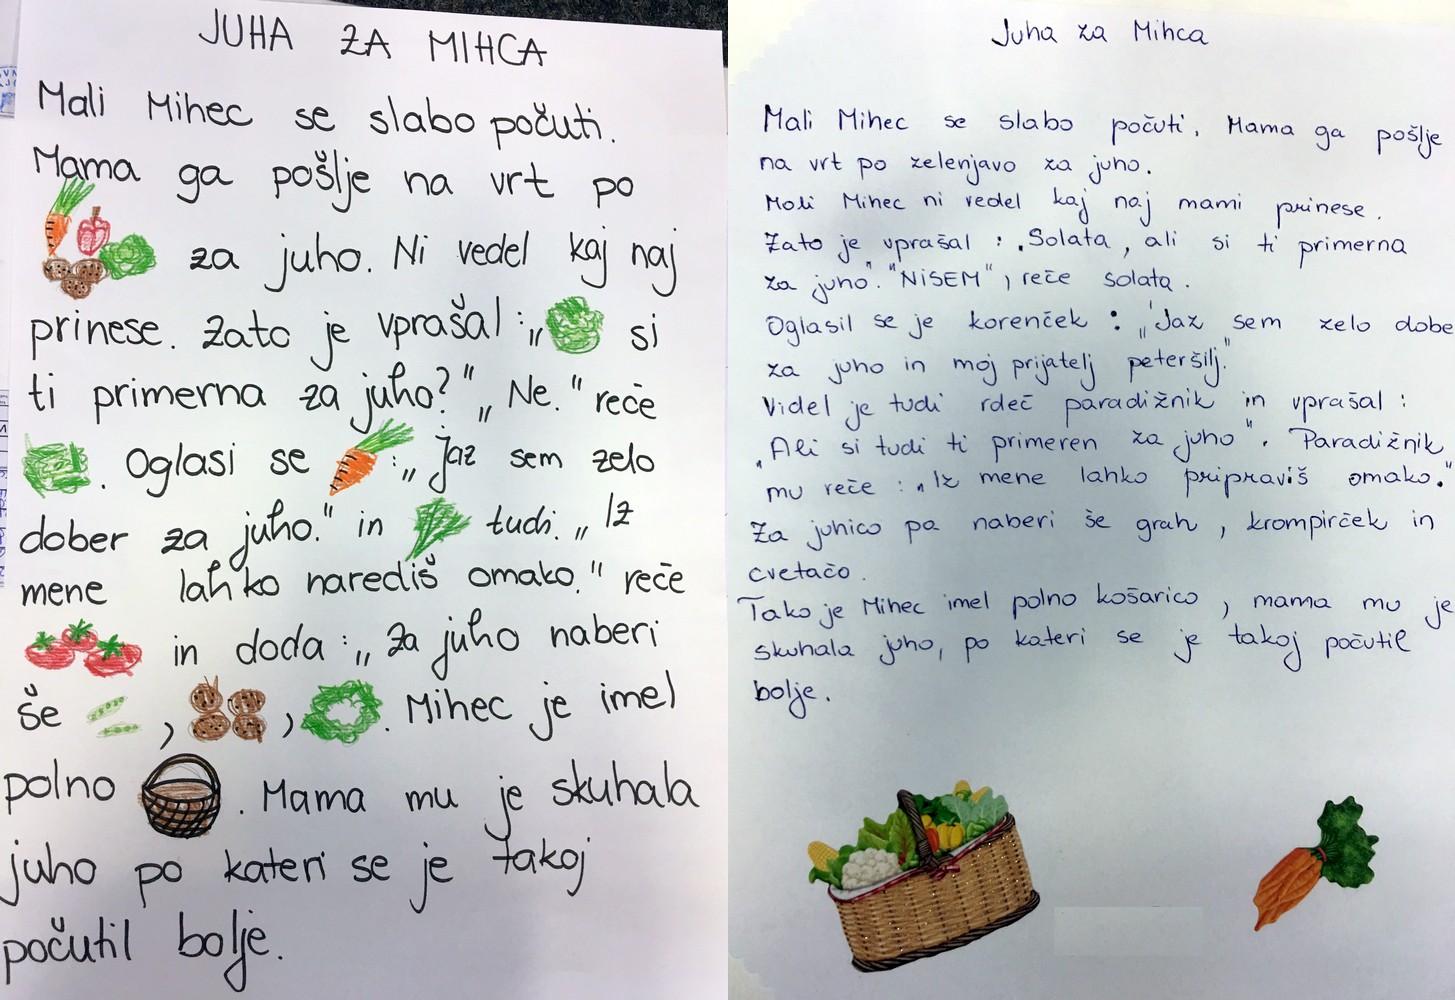 JUHA ZA MIHCA
Mali Mihec se slabo počuti.
Mama ga pošlje na vrt po
za juho. Ni vedel kaj naj
prinese. Zato je vprašal :„ si
ti primerna za juho?" „Ne." reče
. Oglasi se :„ Jaz sem zelo
dober za juho." in tudi. „Iz
mene lahko narediš omako." reče
in doda :„ Za juho naberi
še , , . Mihec je imel
polno . Mama mu je skuhala
juho po kateri se je takoj
počutil bolje.
Juha za Mihca
Mali Mihec se slabo počuti. Mama ga pošlje
na vrt po zelenjavo za juho.
Mali Mihec ni vedel kaj naj mami prinese.
Zato je vprašal : „Solata, ali si ti primerna
za juho". "NiSEM", reče solata.
Oglasil se je korenček : „Jaz sem zelo dobe
za juho in moj prijatelj peteršilj."
Videl je tudi rdeč paradižnik in vprašal :
„Ali si tudi ti primeren za juho". Paradižnik
mu reče : „Iz mene lahko pripraviš omako."
Za juhico pa naberi še grah, krompirček in
cvetačo.
Tako je Mihec imel polno košarico, mama mu je
skuhala juho, po kateri se je takoj počutil
bolje.